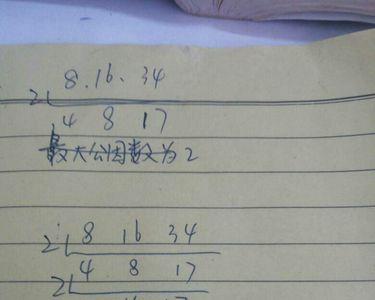 8.16.34
2
4 8 17
最大公因数为2
2 8 16 34
2 4 8 17